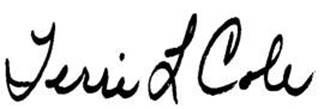 Terri L Cole